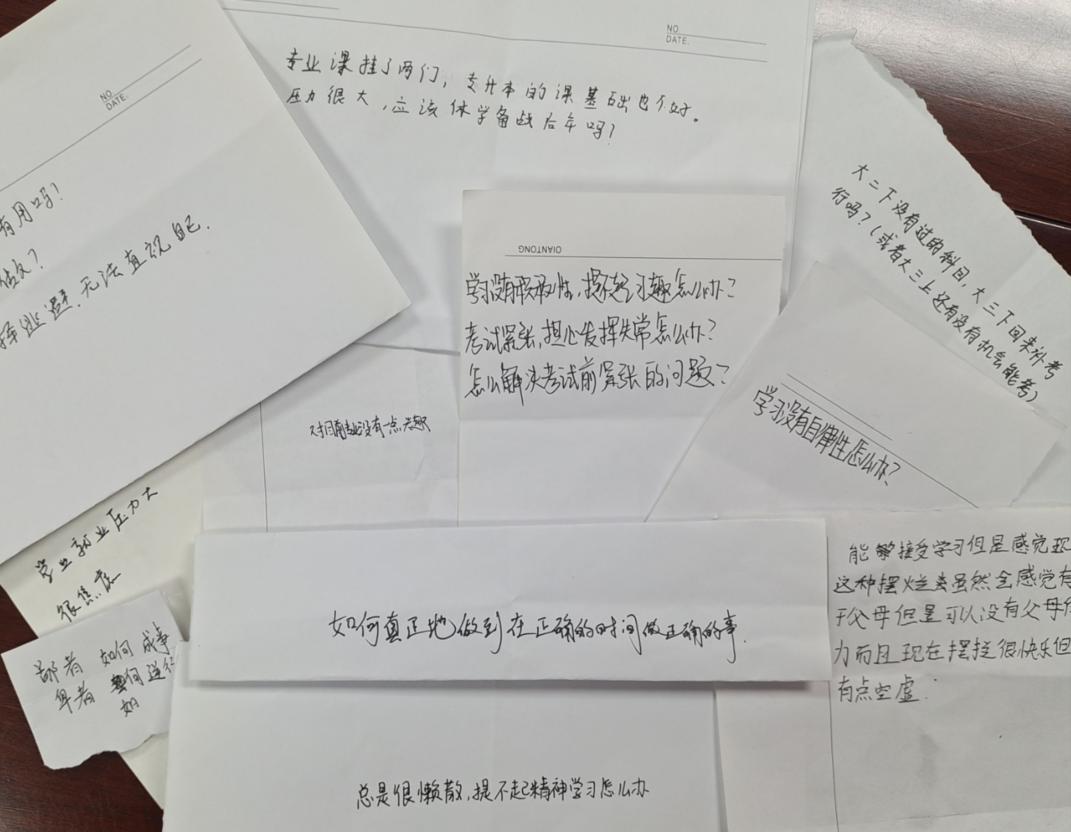 NO
DATE.
专业课挂了两门，专升本的课基础也不好。
压力很大，应该休学备战后年吗？
NO
DATE.
有用吗？
逃避，无法直视自己.
大二下没有过的科目，大三下回来补考
行吗？（或者大三上还有没有机会能考）
QIANTONG
学习没有积极性，提不起兴趣怎么办？
考试紧张，担心发挥失常怎么办？
怎么解决考试前紧张的问题？
学习没有自律性怎么办？
对目前专业没有一点兴趣
毕业就业压力大
很焦虑
鄙者 如何成事
卑者 何逆行
如
如何真正地做到在正确的时间做正确的事.
能够接受学习但是感觉现
这种摆烂类虽然会感觉有
于父母但是可以没有父母
力而且现在摆烂很快乐但
有点空虚.
总是很懒散，提不起精神学习怎么办